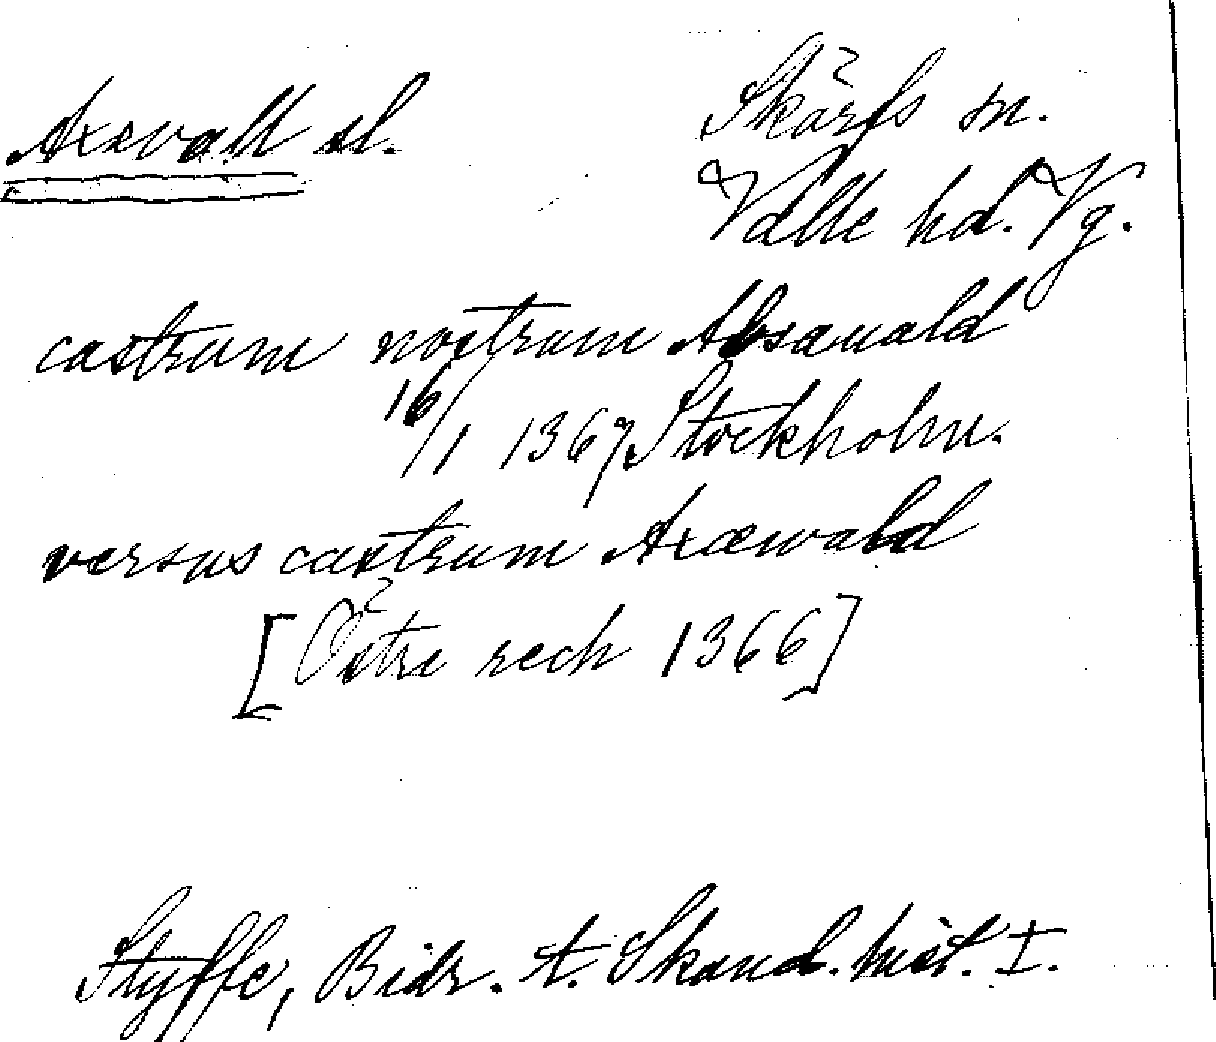 Axevall sl.
Skärfs sn.
Valle hd. Vg.
castrum nostrum Absauald
16/1 1367 Stockholm.
versus castrum Axæwald
[Östre rech 1366]
Styffe, Bidr. t. Skand. hist. I.